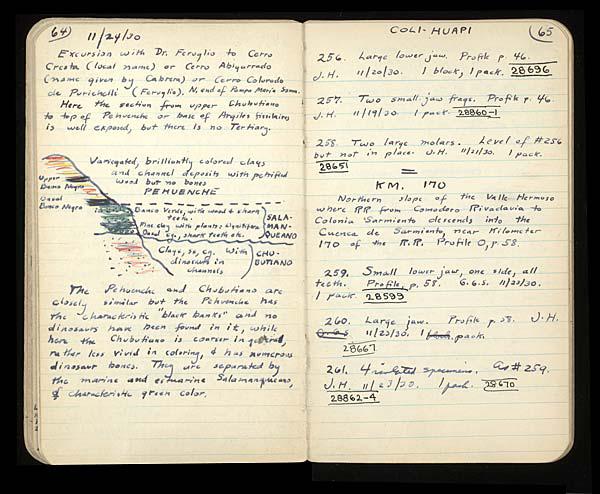 64)
11/24/30
Excursion with Dr. Feruglio to Cerro
Cresta (local name) or Cerro Abigarrado
(name given by Cabrera) or Cerro Colorado
de Purichelli (Feruglio). N. end of Pampa Maria Santa.
Here the section from upper Chubutiano
to top of Pehuenche or base of Argiles fissilaires
is well exposed, but there is no Tertiary.
Variegated, brilliantly colored clays
and channel deposits with petrified
wood but no bones
PEHUENCHE
Upper
Banco Negro
Basal
Banco Negro
Banco Verde, with wood & shark
teeth.
Fine clay with plants & lignitifera
Basal cg., shark teeth etc.
SALA-
MAN-
QUEANO
Clays, ss, cg. With
dinosaurs in
channels
CHU-
BUTIANO
The Pehuenche and Chubutiano are
closely similar but the Pehuenche has
the characteristic "black banks" and no
dinosaurs have been found in it, while
here the Chubutiano is coarser in general,
rather less vivid in coloring, & has numerous
dinosaur bones. They are separated by
the marine and estuarine Salamanqueano,
of characteristic green color.
COLI-HUAPI
(65
256. Large lower jaw. Profile p. 46.
J.H. 11/20/30. 1 block, 1 pack. 28696
257. Two small jaw frags. Profile p. 46.
J.H. 11/19/30. 1 pack. 28860-1
258. Two large molars. Level of #256
but not in place. J.H. 11/21/30. 1 pack.
28651
KM. 170
Northern slope of the Valle Hermoso
where RR from Comodoro Rivadavia to
Colonia Sarmiento descends into the
Cuenca de Sarmiento, near Kilometer
170 of the R.R. Profile O, p. 58.
259. Small lower jaw, one side, all
teeth. Profile, p. 58. G.G.S. 11/23/30.
1 pack. 28599
260. Large jaw. Profile p. 58. J.H.
11/23/30. 1 pack.
28667
261. 4 isolated specimens. As #259.
J.H. 11/23/30. 1 pack. 28670
28862-4